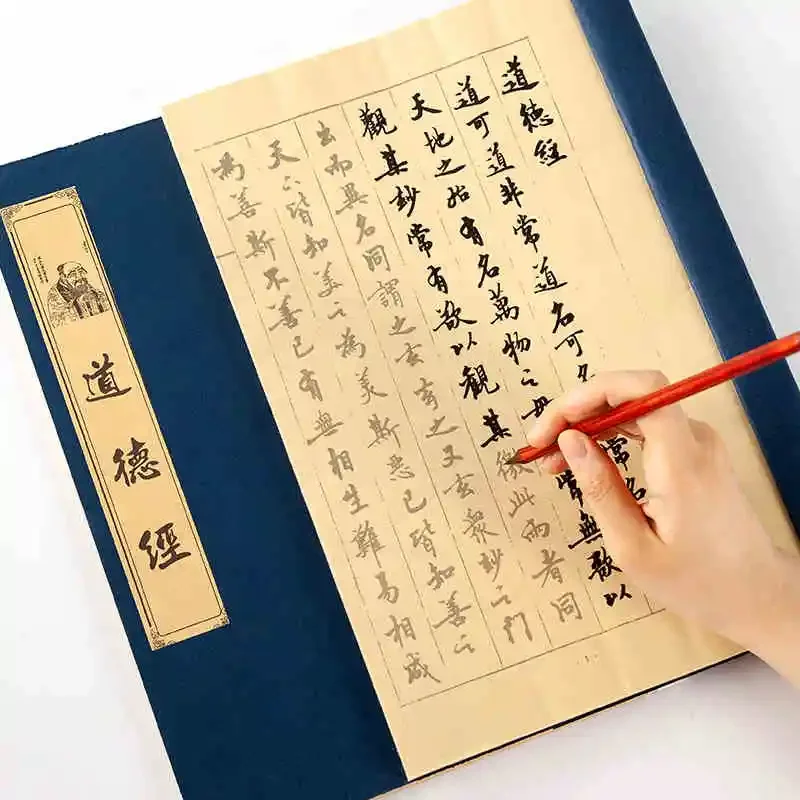 道德經
道可道非常道名可名常名
天地之始有名萬物之母常無欲以
觀其妙常有欲以觀其徼此兩者同
出而異名同謂之玄玄之又玄衆妙之门
天下皆知美之為美斯惡已皆知善之
為善斯不善已有無相生難易相成
·1·
道德經